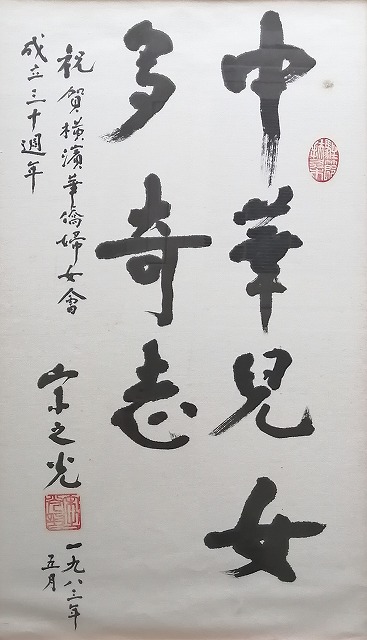 中華兒女
多奇志
祝賀橫濱華僑婦女會
成立三十週年
宋之光
一九八三年
五月